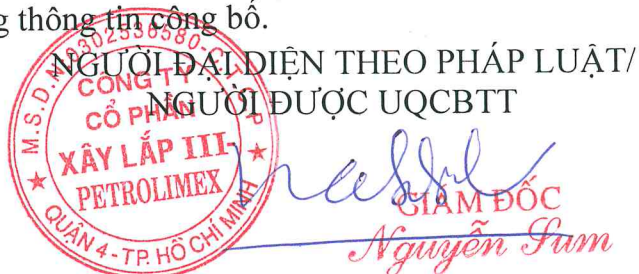 g thông tin công bố.
NGƯỜI ĐẠI DIỆN THEO PHÁP LUẬT/
NGƯỜI ĐƯỢC UQCBTT
M.S.D.N: 0302536580-C.T.C.P
CÔNG TY
CỔ PHẦN
XÂY LẮP III-
PETROLIMEX
QUẬN 4 - TP. HỒ CHÍ MINH
GIÁM ĐỐC
Nguyễn Sum